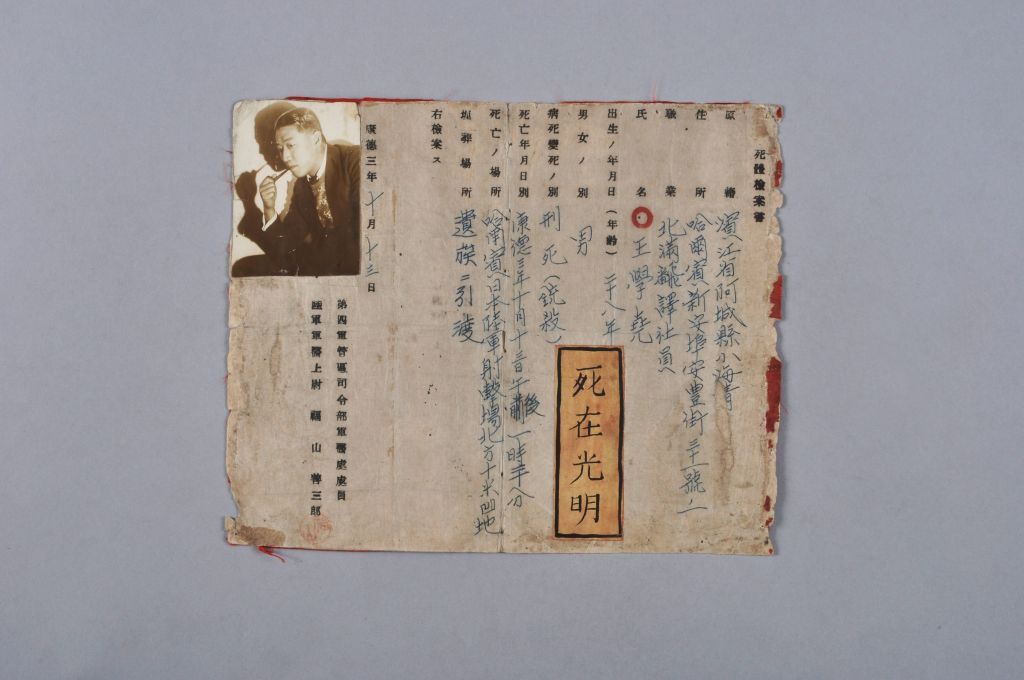 死體檢案書
原籍 濱江省阿城縣小海青
住所 哈爾賓新安埠安豊街三十一號ノ二
職業 北滿飜譯社員
氏名 王學堯
出生ノ年月日(年齡) 二十八年
男女ノ別 男
病死變死ノ別 刑死(銃殺)
死亡年月日別 康德三年十月十三日午後一時半分
死亡ノ場所 哈爾賓日本陸軍射擊場北方十米凹地
埋葬場所 遺族ニ引渡
右檢案ス
康德三年十月十三日
第四軍管區司令部軍醫處處員
陸軍軍醫上尉 福山 善三郎
死在光明